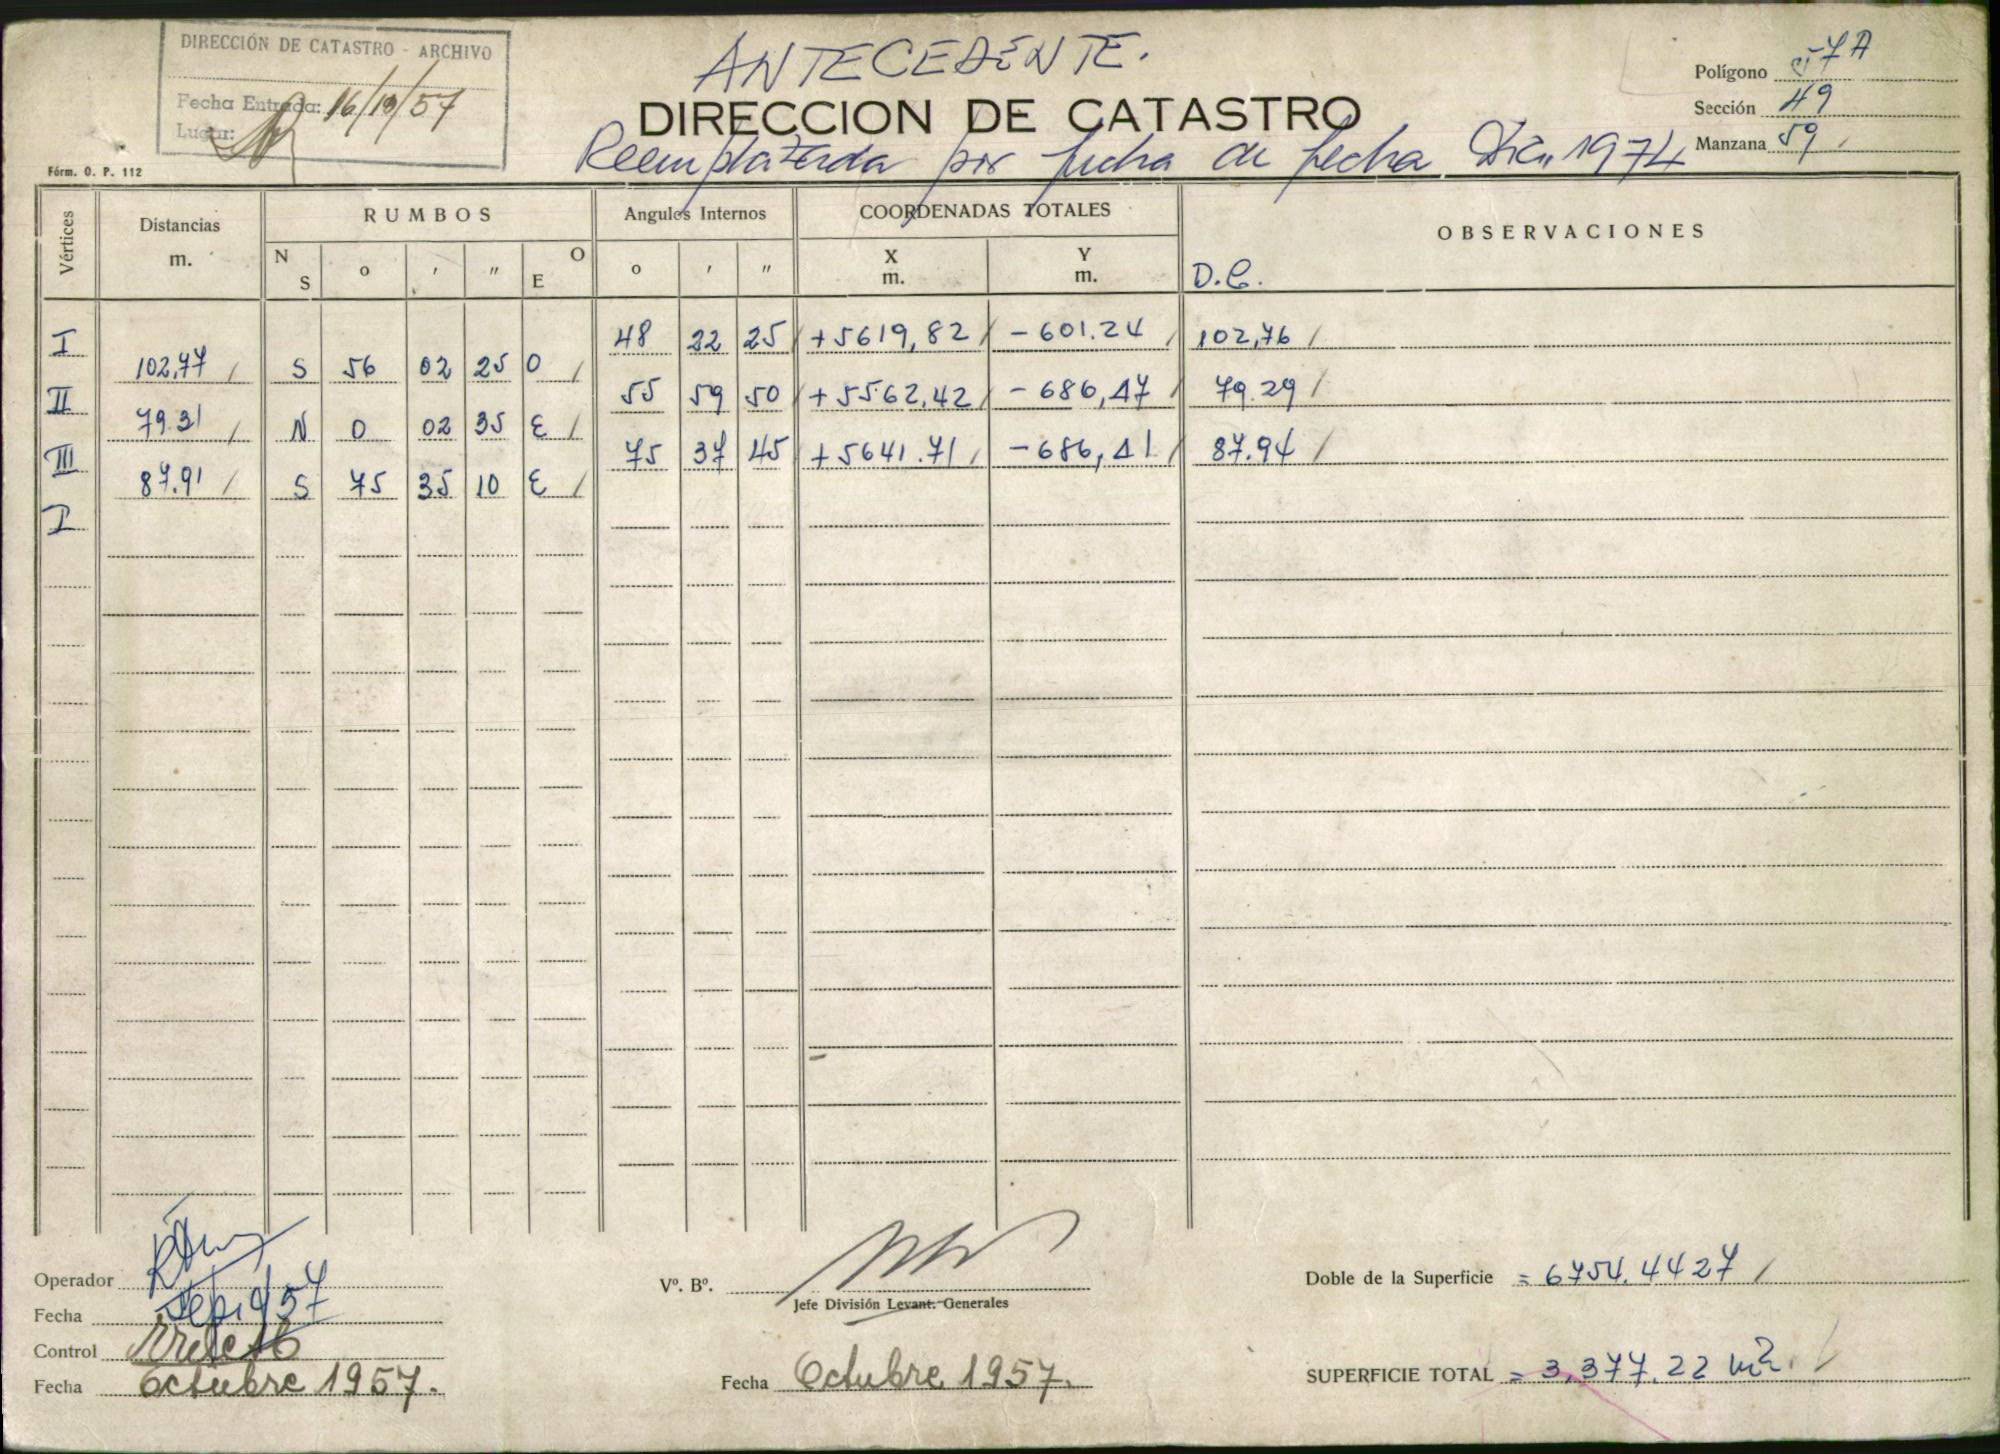 DIRECCIÓN DE CATASTRO - ARCHIVO
Fecha Entrada: 16/10/57
Lugar:
ANTECEDENTE.
DIRECCION DE CATASTRO
Reemplazada por ficha de fecha Dic. 1974
Polígono J-7A
Sección 49
Manzana 59
Fórm. O. P. 112
Vértices Distancias m. RUMBOS Angulos Internos COORDENADAS TOTALES OBSERVACIONES
N S o ' " E O o ' " X m. Y m. D.C.
I 48 22 25 +5619,82 -601.24 102,76
102,77 S 56 02 25 O
II 55 59 50 +5562.42 -686,47 79.29
79.31 N 0 02 35 E
III 75 37 45 +5641.71 -686,41 87.94
87.91 S 75 35 10 E
I
Operador
Fecha Sep 9/57
Control
Fecha Octubre 1957.
Vº. Bº.
Jefe División Levant. Generales
Fecha Octubre 1957.
Doble de la Superficie = 6754.4427
SUPERFICIE TOTAL = 3,377.22 m2.